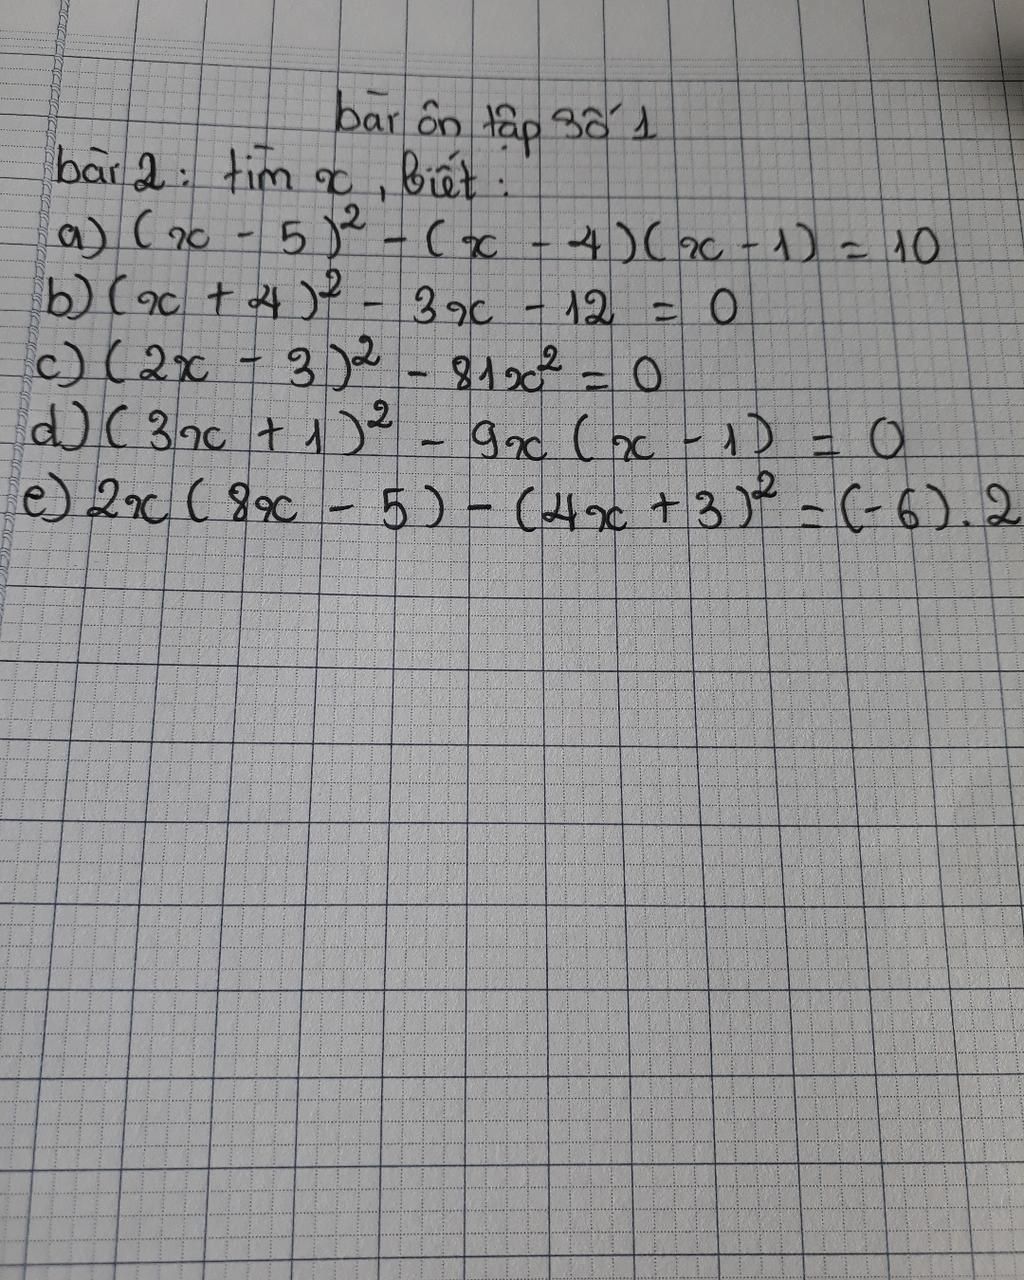 bài ôn tập số 1
bài 2: tìm x, Biết:
a) (x - 5)² - (x - 4)(x - 1) = 10
b) (x + 4)² - 3x - 12 = 0
c) (2x - 3)² - 81x² = 0
d) (3x + 1)² - 9x (x - 1) = 0
e) 2x (8x - 5) - (4x + 3)² = (-6).2